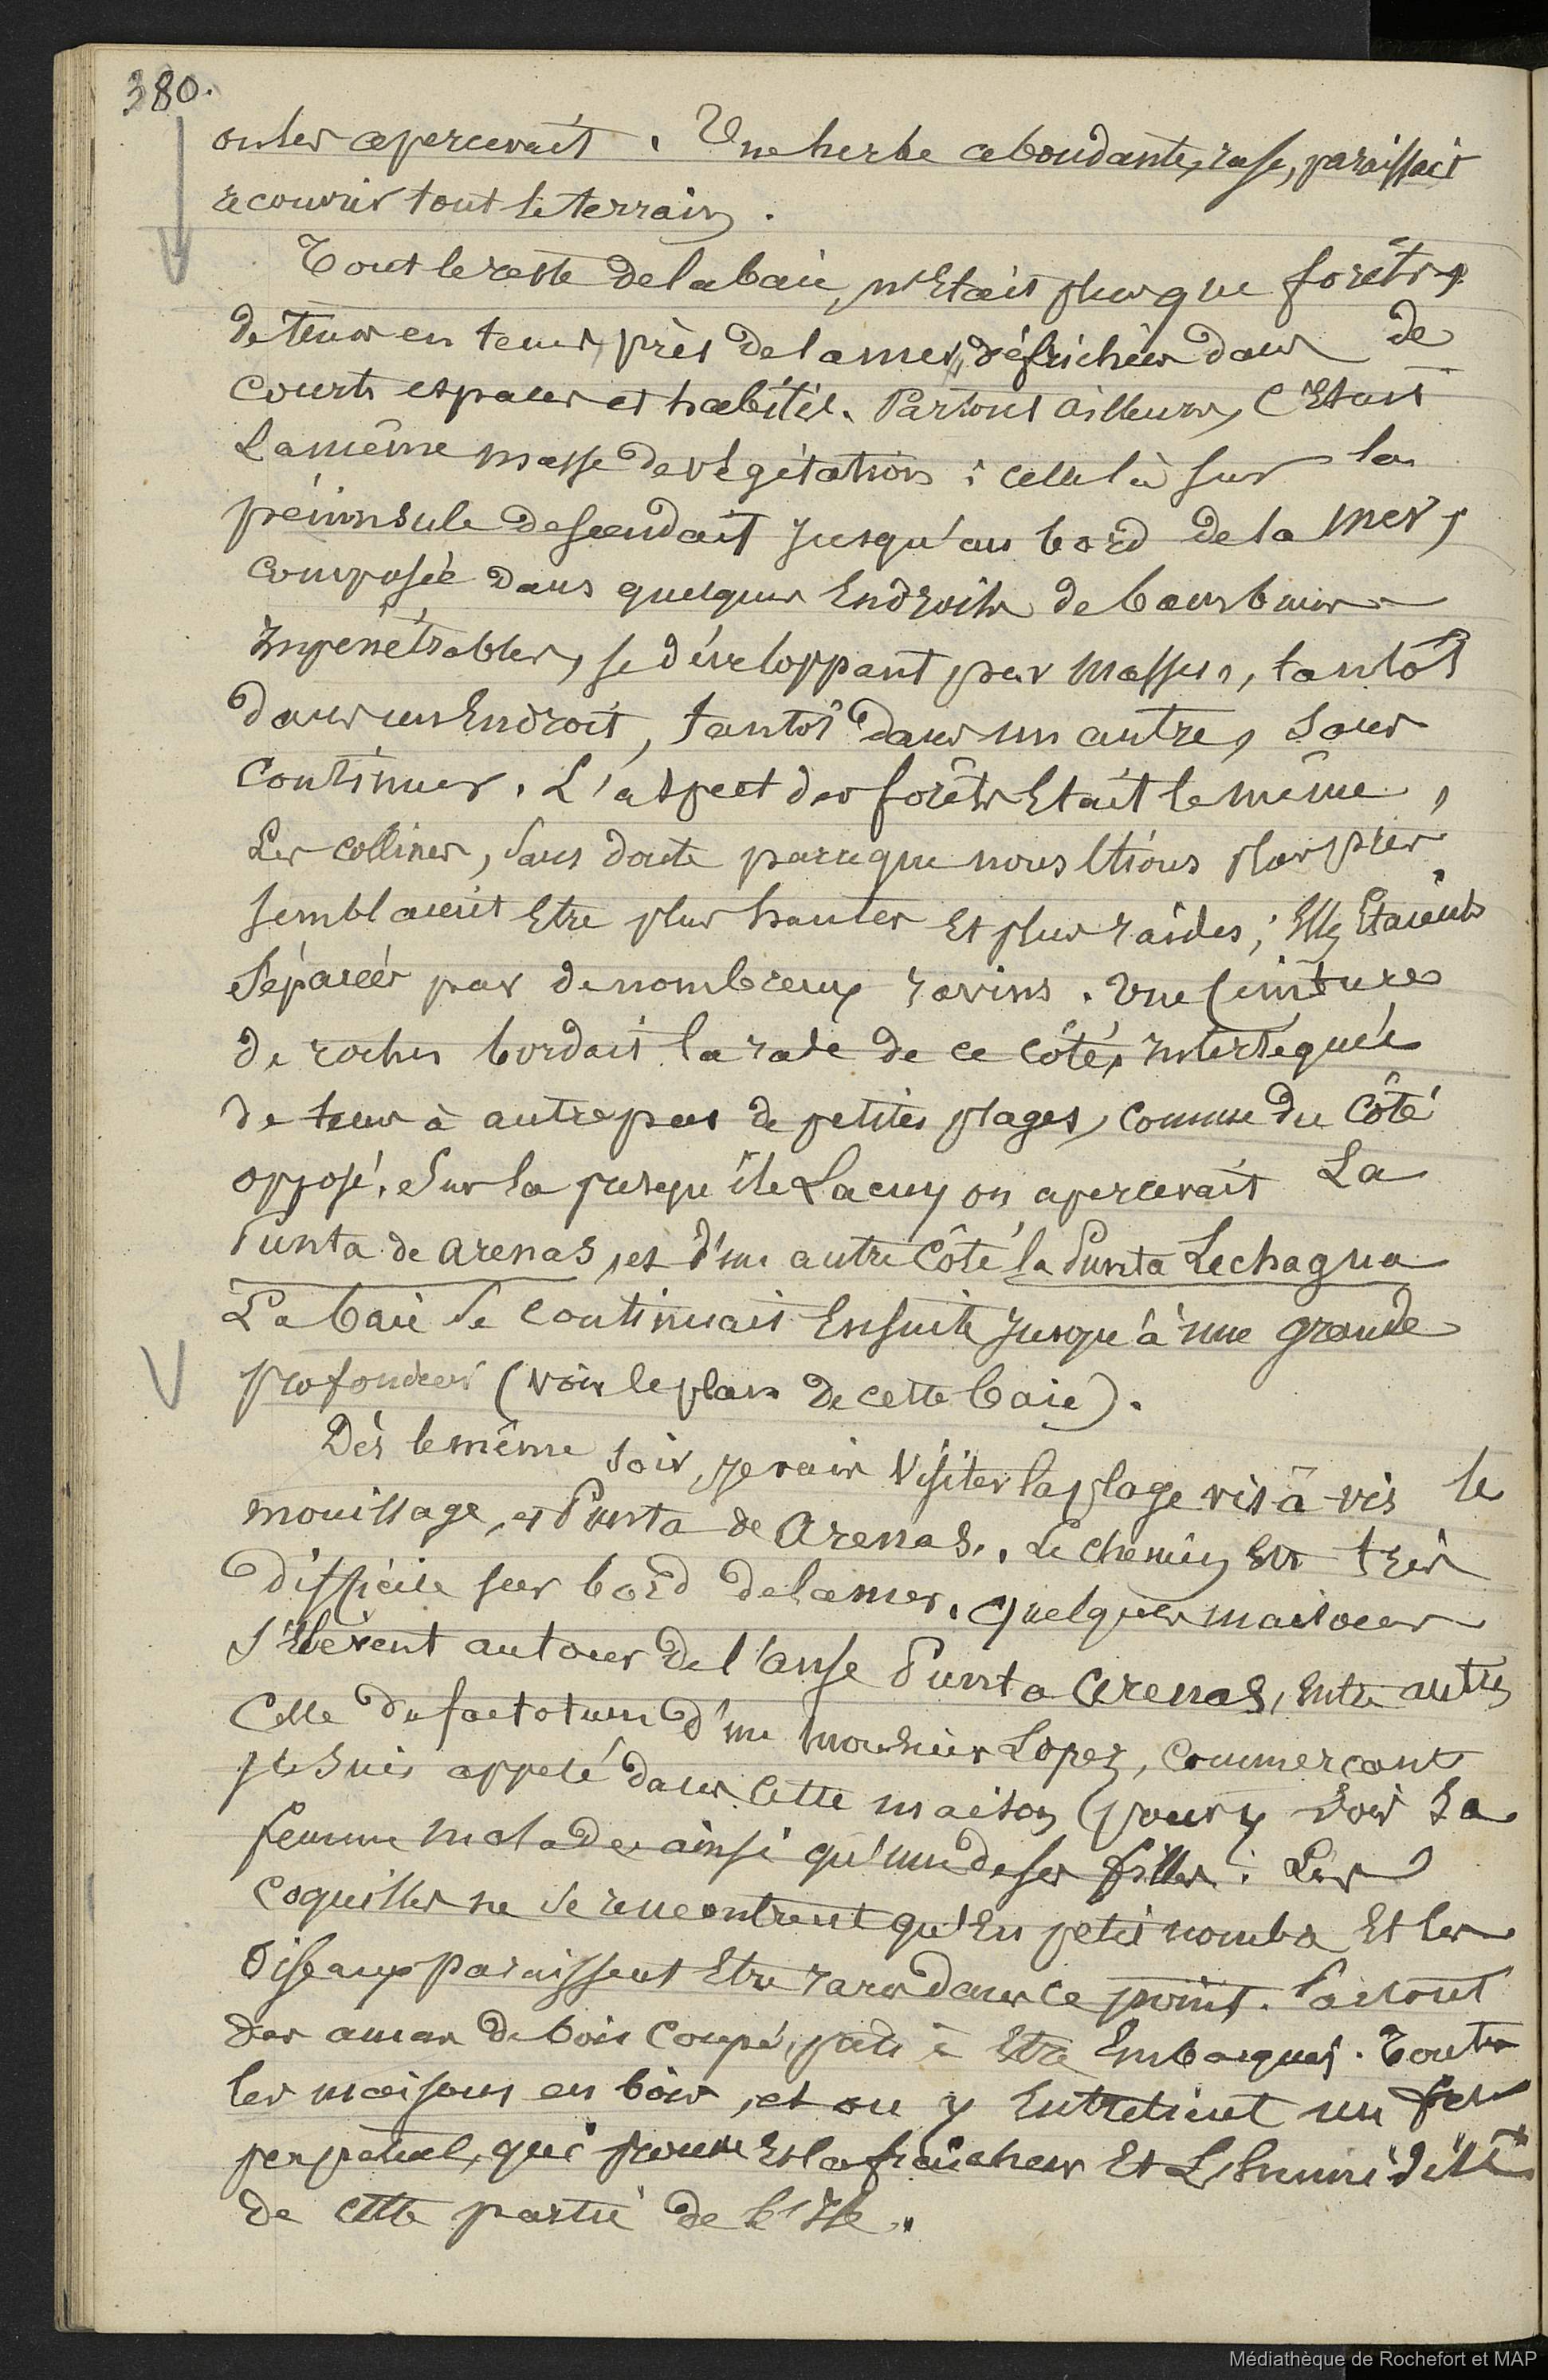 380.
on les apercevait. Une herbe abondante, rase, paraissait
recouvrir tout le terrain.
Tout le reste de la baie, n'était plus que forêts,
de tems en tems, près de la mer, défrichées dans de
courts espaces et habités. Partout ailleurs, c'était
la même masse de végétation : celle là sur la
péninsule descendait jusqu'au bord de la mer,
composée dans quelques endroits de bambous
impénétrables, se développant par masses, tantôt
dans un endroit, tantôt dans un autre, sans
continuer. L'aspect des forêts était le même,
Les collines, sans doute parceque nous étions plus près
semblaient être plus hautes et plus raides ; elles étaient
séparées par de nombreux ravins. Une ceinture
de roches bordait la rade de ce côté, interceptée
de tems à autre par de petites plages, comme du côté
opposé. Sur la presqu'île Lacuy on apercevait La
Punta de Arenas, et d'un autre côté la Punta Lechagua
La baie se continuait ensuite jusqu'à une grande
profondeur (voir le plan de cette baie).
Dès le même soir, je vais visiter la plage vis à vis le
mouillage, et Punta de Arenas. Le chemin est très
difficile sur bord de la mer. Quelques maisons
s'élèvent autour de l'anse Punta Arenas, entre autres
celle du factotum d'un monsieur Lopez, commerçant
je suis appelé dans cette maison pour y voir sa
femme malade ainsi qu'une de ses filles. Les
coquilles ne se rencontrent qu'en petit nombre et les
oiseaux paraissent être rares dans ce point. Là sont
des amas de bois coupé, prêts à être embarqués. Toutes
les maisons en bois, et on y entretient un feu
perpétuel, qui prouve et la fraîcheur et l'humidité
de cette partie de l'Ile.
Médiathèque de Rochefort et MAP